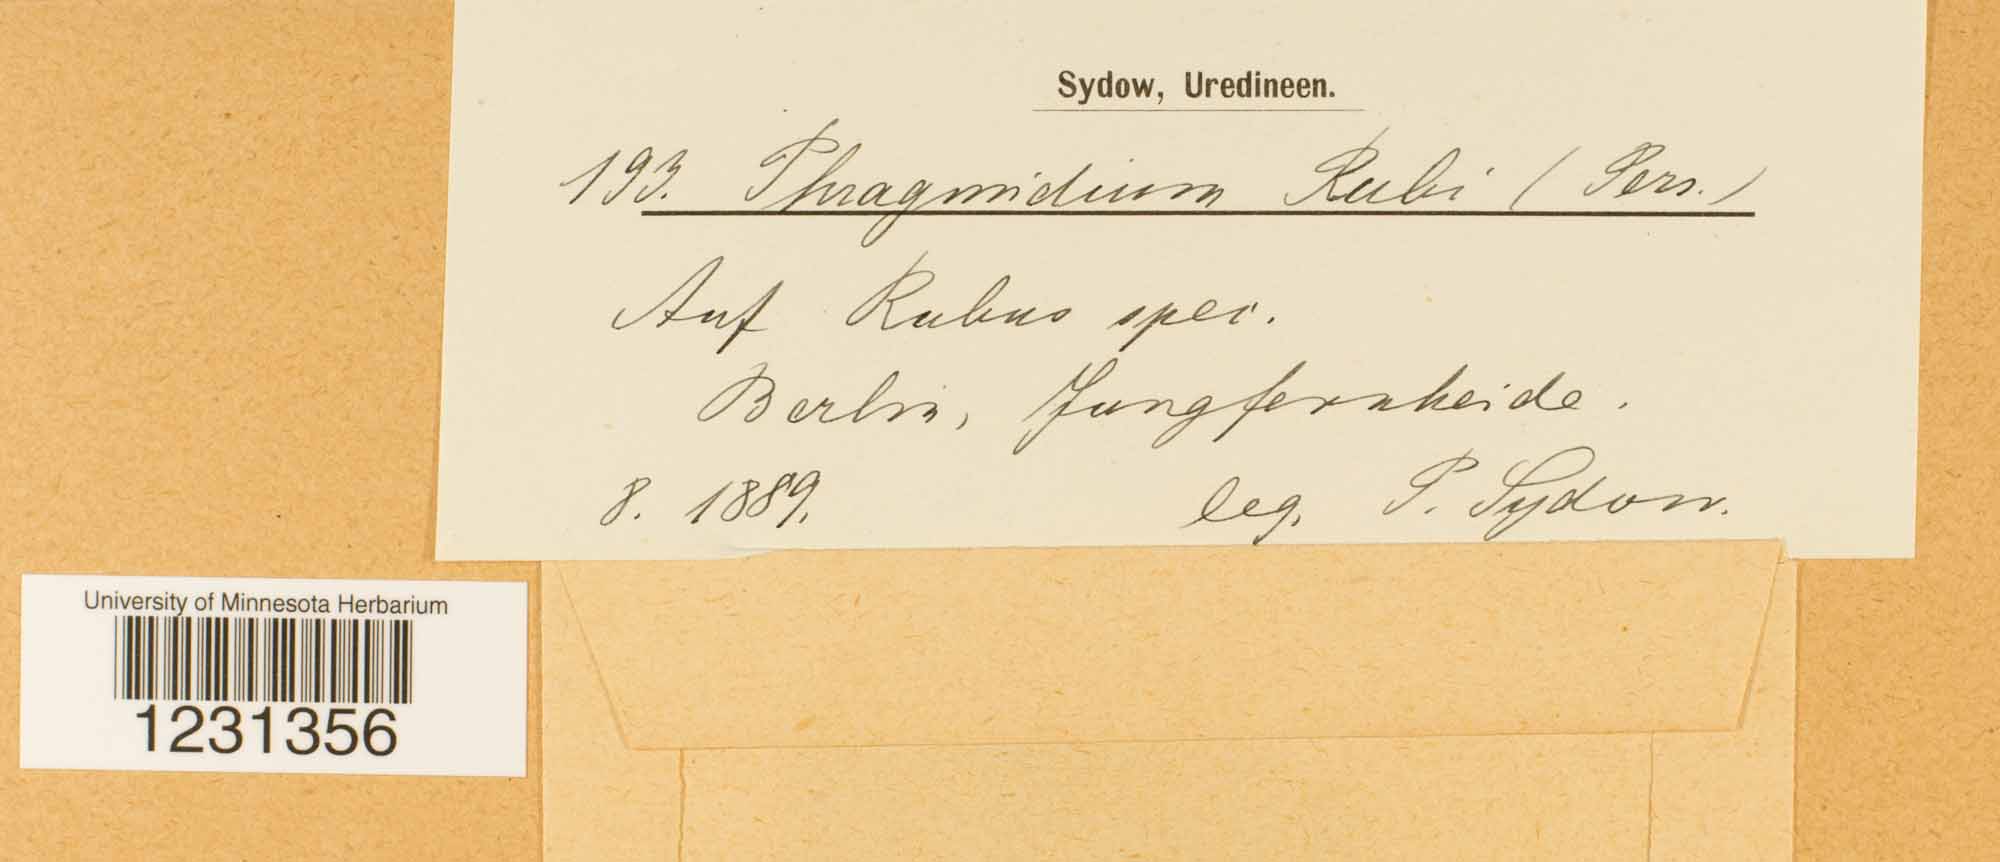 Sydow, Uredineen.
193. Phragmidium Rubi (Pers.)
Auf Rubus spec.
Berlin, Jungfernheide.
8. 1889. leg. P. Sydow.
University of Minnesota Herbarium
1231356